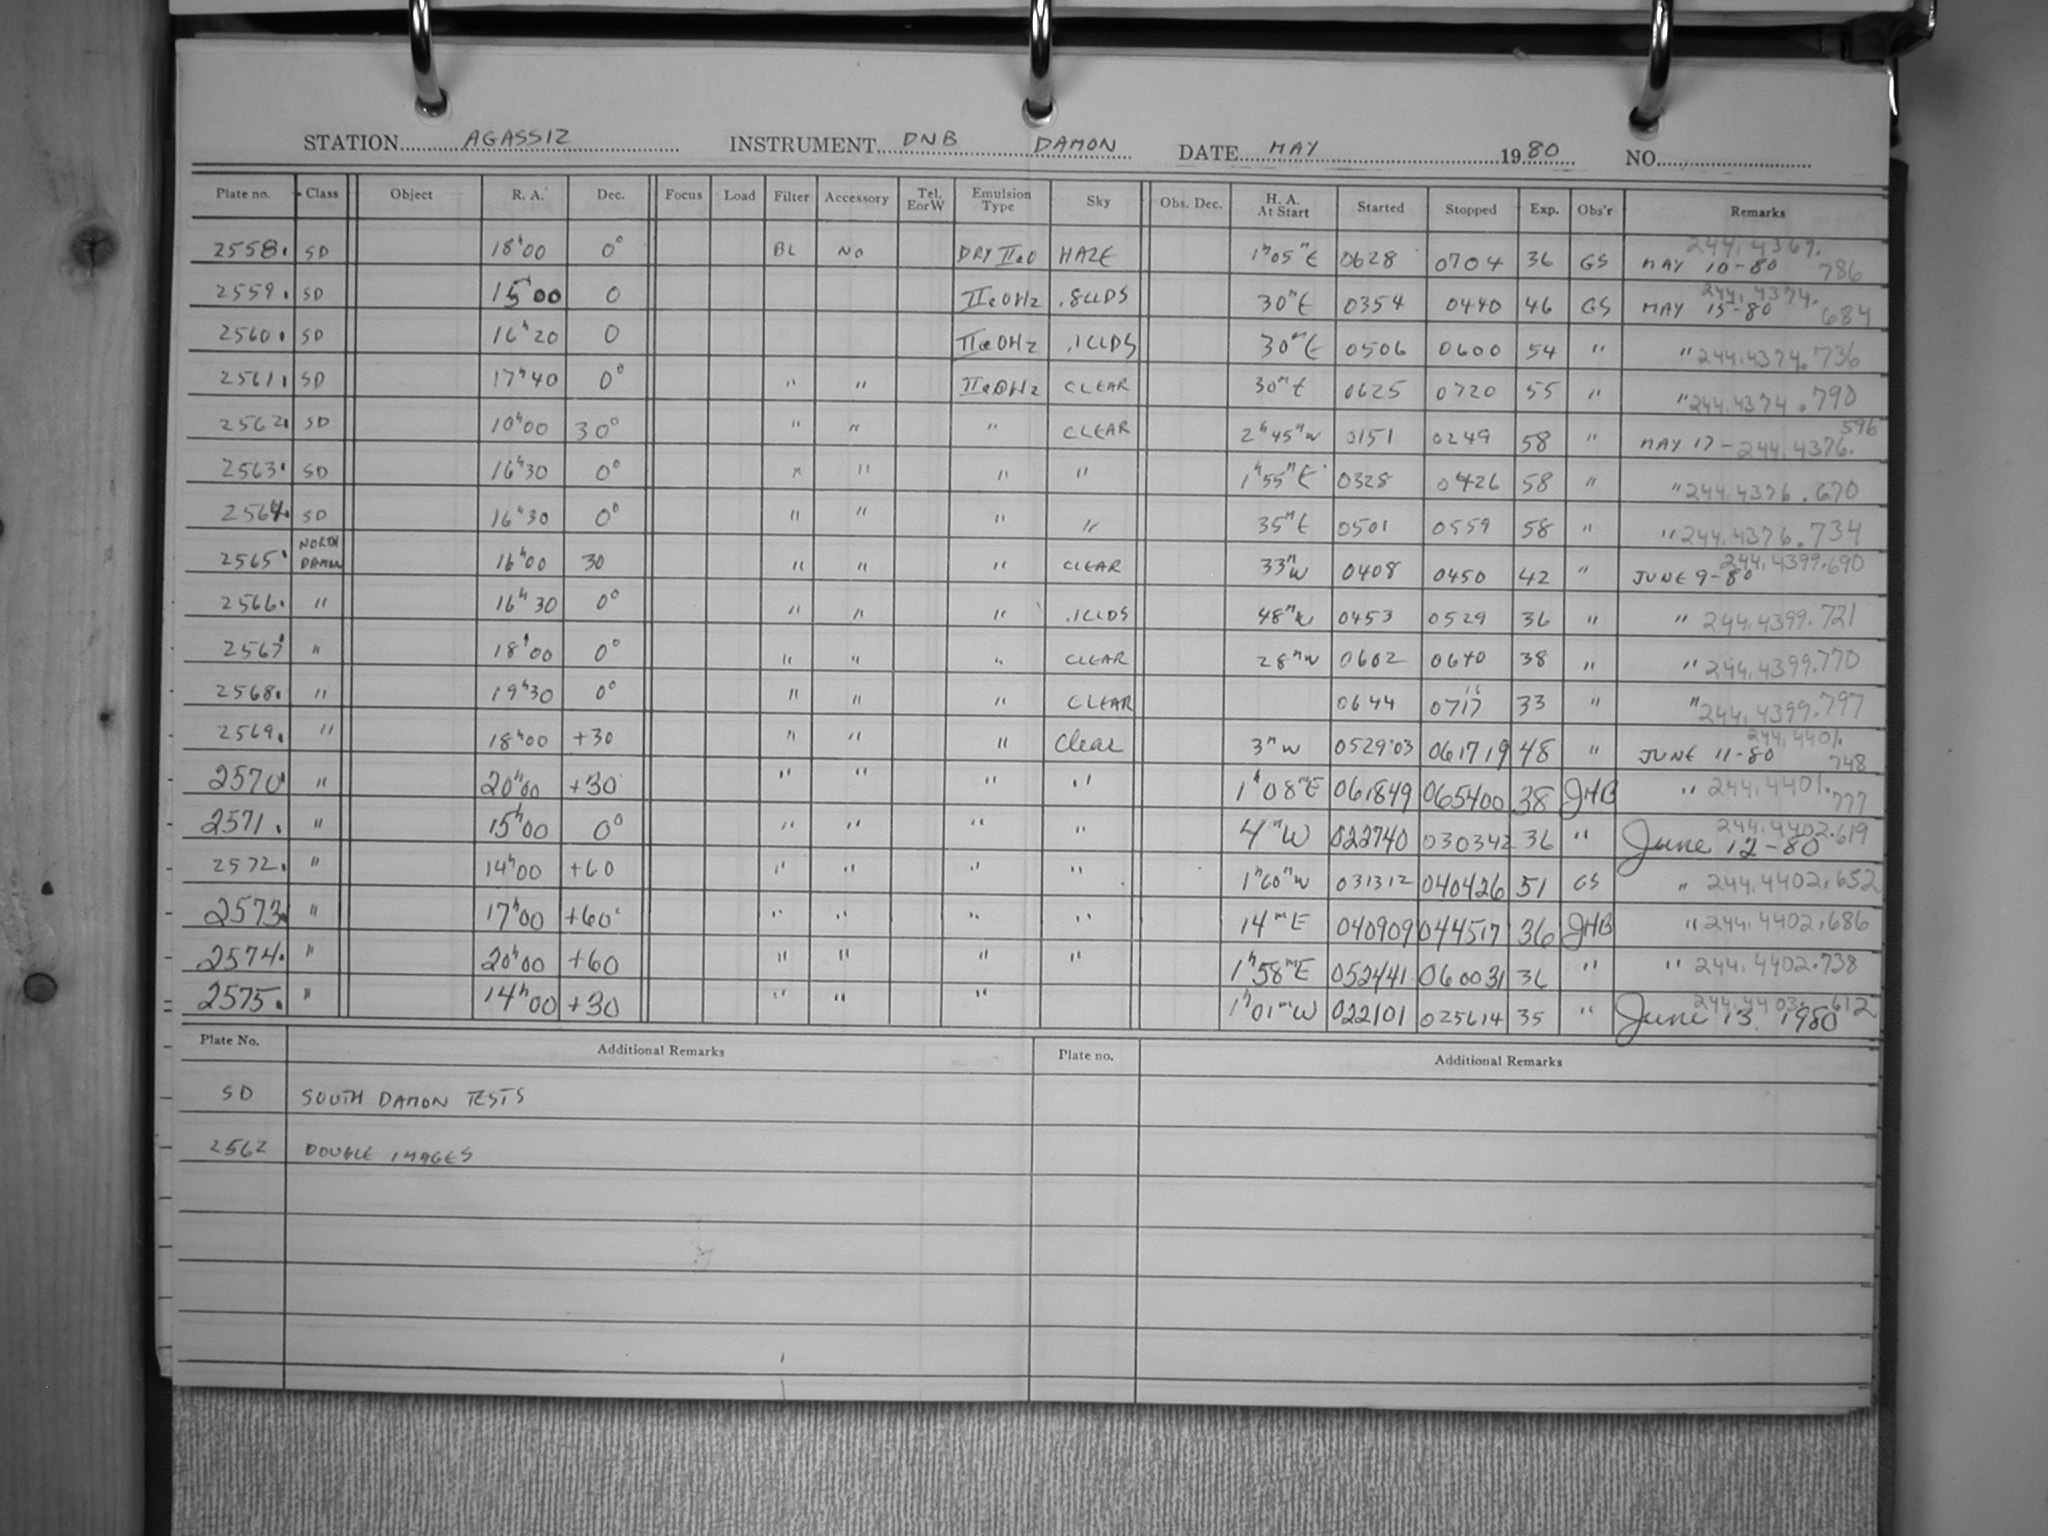 STATION AGASSIZ INSTRUMENT DNB DAMON DATE MAY 1980 NO.
Plate no. Class Object R. A. Dec. Focus Load Filter Accessory Tel. E or W Emulsion Type Sky Obs. Dec. H. A. At Start Started Stopped Exp. Obs'r Remarks
2558. SD 18h00 0° BL NO DRY IIaO HAZE 1h05m E 0628 0704 36 GS MAY 10-80 244,4369.786
2559. SD 15h00 0 IIaOH2 .8CLDS 30m E 0354 0440 46 GS MAY 15-80 244,4374.684
2560. SD 16h20 0 IIaOH2 .1CLDS 30m E 0506 0600 54 " " 244,4374.736
2561. SD 17h40 0° " " IIaOH2 CLEAR 30m E 0625 0720 55 " " 244,4374.790
2562. SD 10h00 30° " " " CLEAR 2h45m W 0151 0249 58 " MAY 17- 244,4376.596
2563. SD 16h30 0° " " " " 1h55m E 0328 0426 58 " " 244,4376.670
2564. SD 16h30 0° " " " " 35m E 0501 0559 58 " " 244,4376.734
2565. NORTH DAMON 16h00 30 " " " CLEAR 33m W 0408 0450 42 " JUNE 9-80 244,4399.690
2566. " 16h30 0° " " " .1CLDS 48m W 0453 0529 36 " " 244,4399.721
2567. " 18h00 0° " " " CLEAR 28m W 0602 0640 38 " " 244,4399.770
2568. " 19h30 0° " " " CLEAR 0644 0717 16 33 " " 244,4399.797
2569. " 18h00 +30 " " " Clear 3m W 0529 03 061719 48 " JUNE 11-80 244,4401.748
2570. " 20h00 +30 " " " " 1h08m E 061849 065400 38 JHB " 244,4401.777
2571. " 15h00 0° " " " " 4m W 022740 030342 36 " June 12-80 244,4402.619
2572. " 14h00 +60 " " " " 1h60m W 031312 040426 51 GS " 244,4402.652
2573. " 17h00 +60° " " " " 14m E 040909 044517 36 JHB " 244,4402.686
2574. " 20h00 +60 " " " " 1h58m E 052441 060031 36 " " 244,4402.738
2575. " 14h00 +30 " " " 1h01m W 022101 025614 35 " June 13, 1980 244,4403.612
Plate No. Additional Remarks Plate no. Additional Remarks
SD SOUTH DAMON TESTS
2562 DOUBLE IMAGES